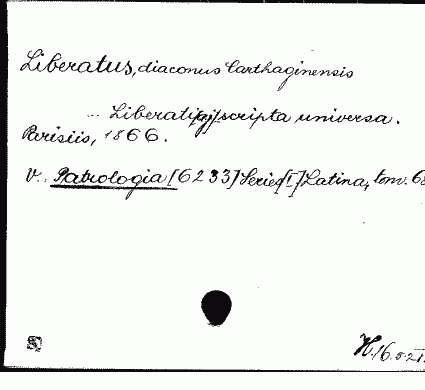 Liberatus, diaconus Carthaginensis
... Liberati scripta universa.
Parisiis, 1866.
V. Patrologia [6233] Series [I] Latina, tom. 68
H.16.